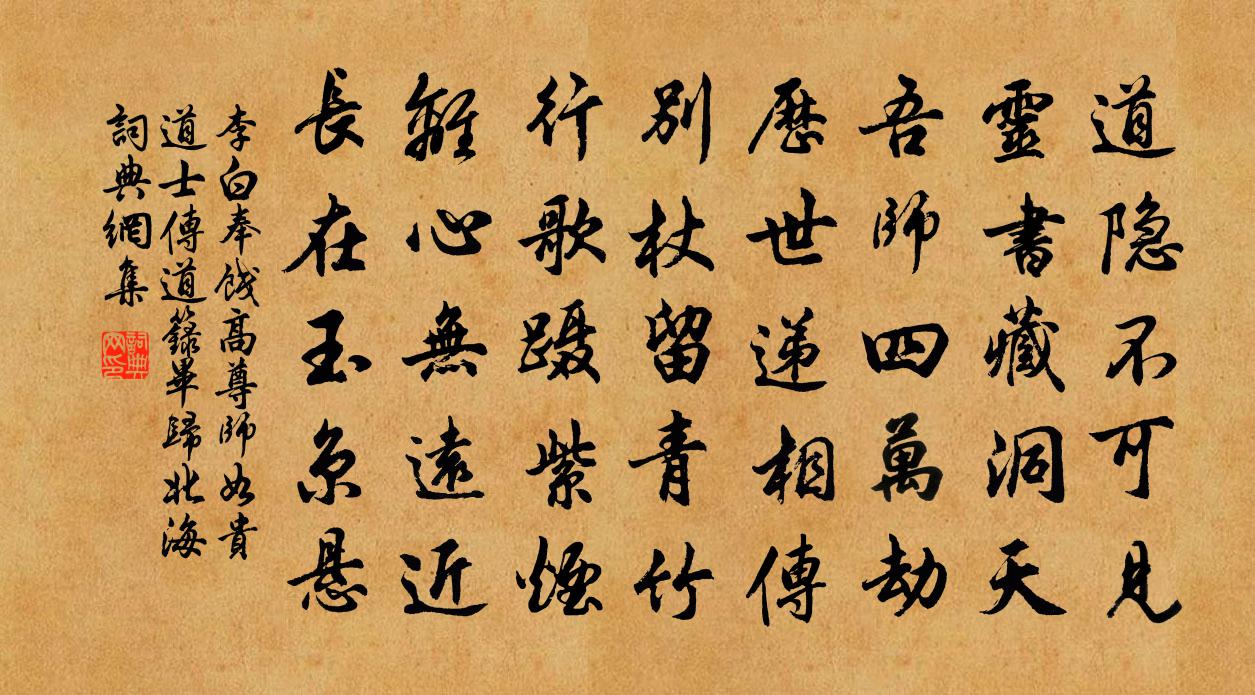 道隐不可見
靈書藏洞天
吾師四萬劫
歷世递相傳
別杖留青竹
行歌蹑紫煙
離心無遠近
長在玉京悬
李白奉餞高尊師如貴
道士傳道籙畢歸北海
詞典網集
詞典网印